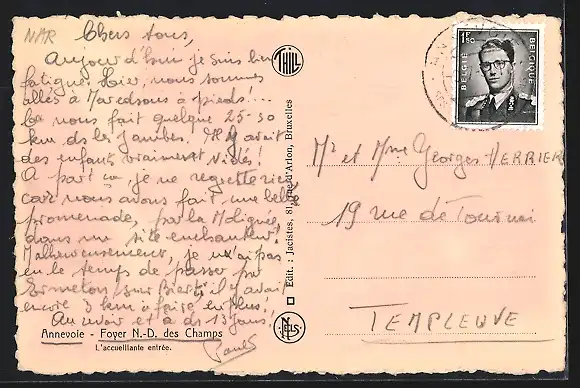 NAR Chers tous,
Aujourd'hui je suis bien
fatiguée. Hier, nous sommes
allés à Maredsous à pieds!...
ça nous fait quelque 25-30
km ds les jambes. Il y avait
des enfants vraiment vidés!
A part ça je ne regrette rien
car nous avons fait une belle
promenade, par la Molignée,
dans un site enchanteur!
Malheureusement, je n'ai pas
eu le temps de passer par
Ermeton/sur Biert; il y avait
encore 3 km à faire en plus!
Au revoir et à ds 13 jours!
Paul
Annevoie - Foyer N.-D. des Champs
L'accueillante entrée.
THILL
Edit.: Jacistes, 81, rue d'Arlon, Bruxelles
NELS
1F50
BELGIE BELGIQUE
Mr et Mme Georges HERBIER
19 rue de Tournai
TEMPLEUVE